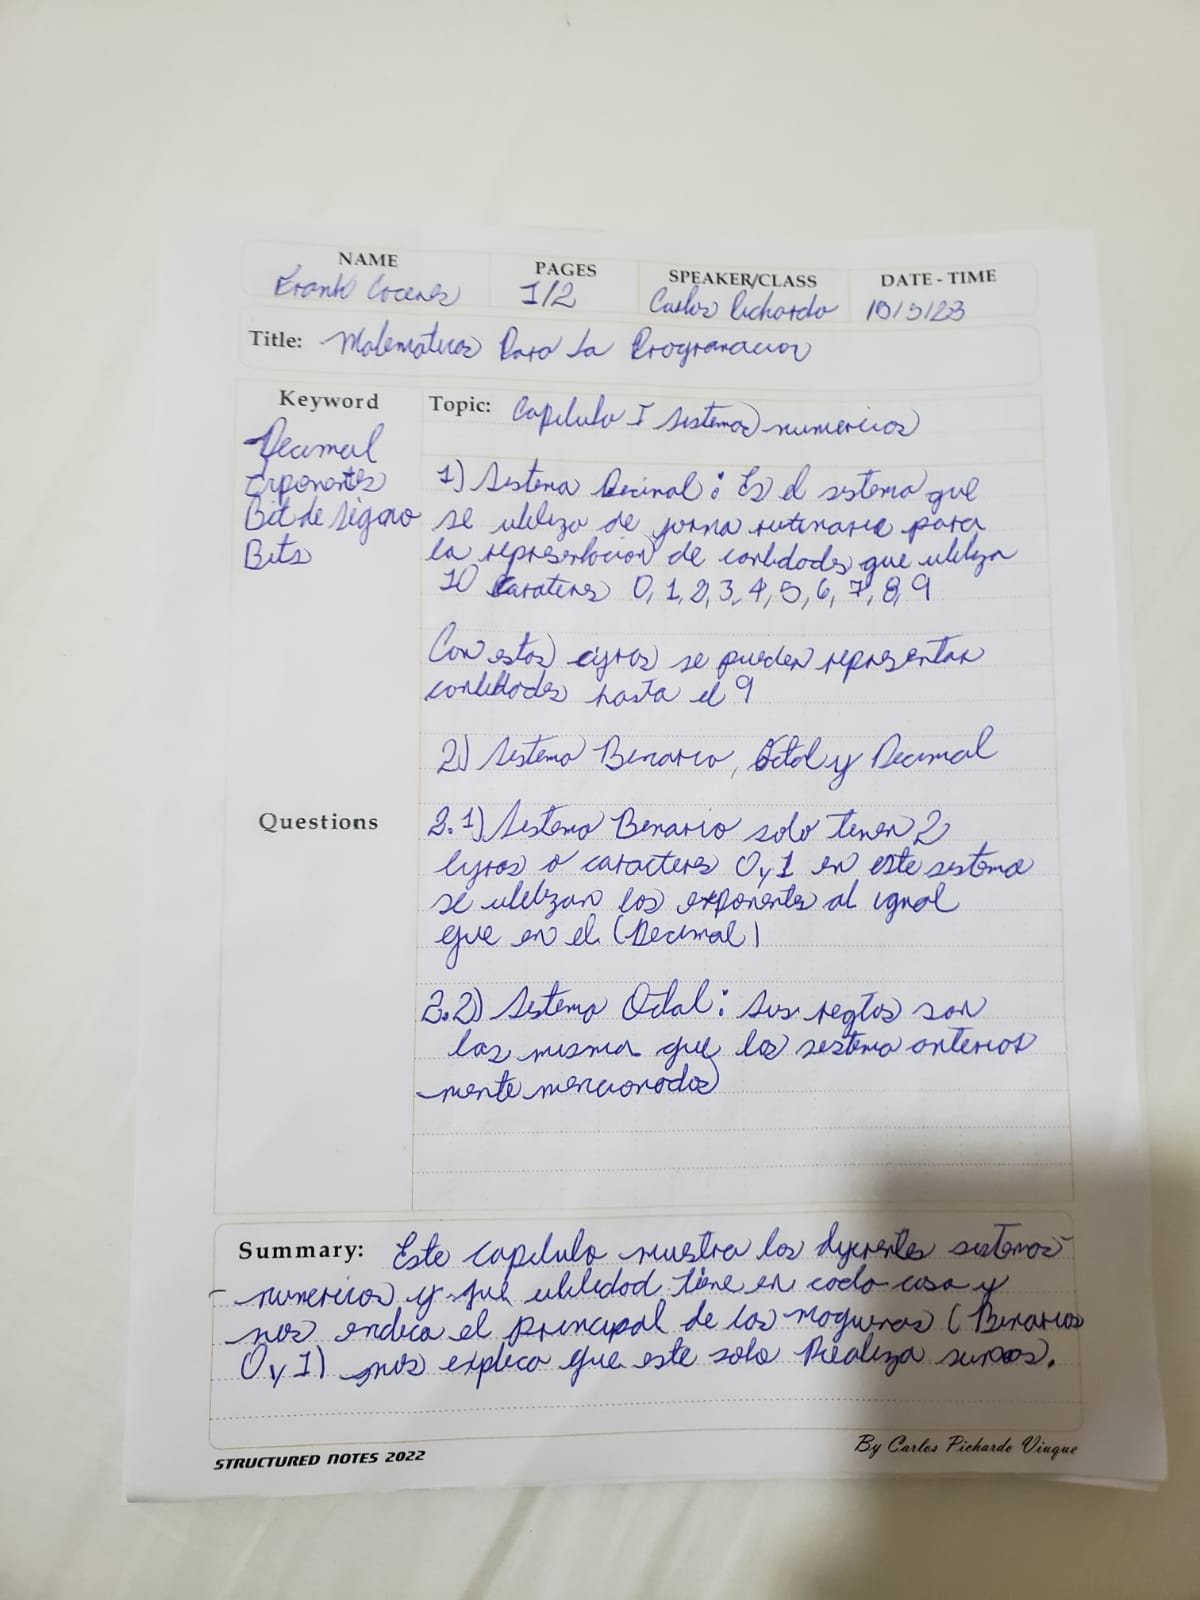 NAME PAGES SPEAKER/CLASS DATE - TIME
Frank 1/2 Carlos Pichardo
Title: Matematicas Para La Programacion
Keyword
Decimal
Exponentes
Bit de signo
Bits
Topic: Capitulo I Sistemas numericos
1) Sistema Decimal: Es el sistema que
se utiliza de forma rutinaria para
la representacion de cantidades que utiliza
10 caracteres 0, 1, 2, 3, 4, 5, 6, 7, 8, 9
Con estas cifras se pueden representar
cantidades hasta el 9
2) Sistema Binario, Octal y Decimal
Questions
2.1) Sistema Binario solo tienen 2
cifras o caracteres 0 y 1 en este sistema
se utilizan los exponentes al igual
que en el (Decimal)
2.2) Sistema Octal: Sus reglas son
las misma que los sistema anterior
mente mencionados
Summary: Este capitulo muestra los diferentes sistemas
numericos y que utilidad tiene en cada cosa y
nos indica el principal de las maquinas (Binarios
0 y 1) nos explica que este solo Realiza sumas.
STRUCTURED NOTES 2022
By Carlos Pichardo Viuque